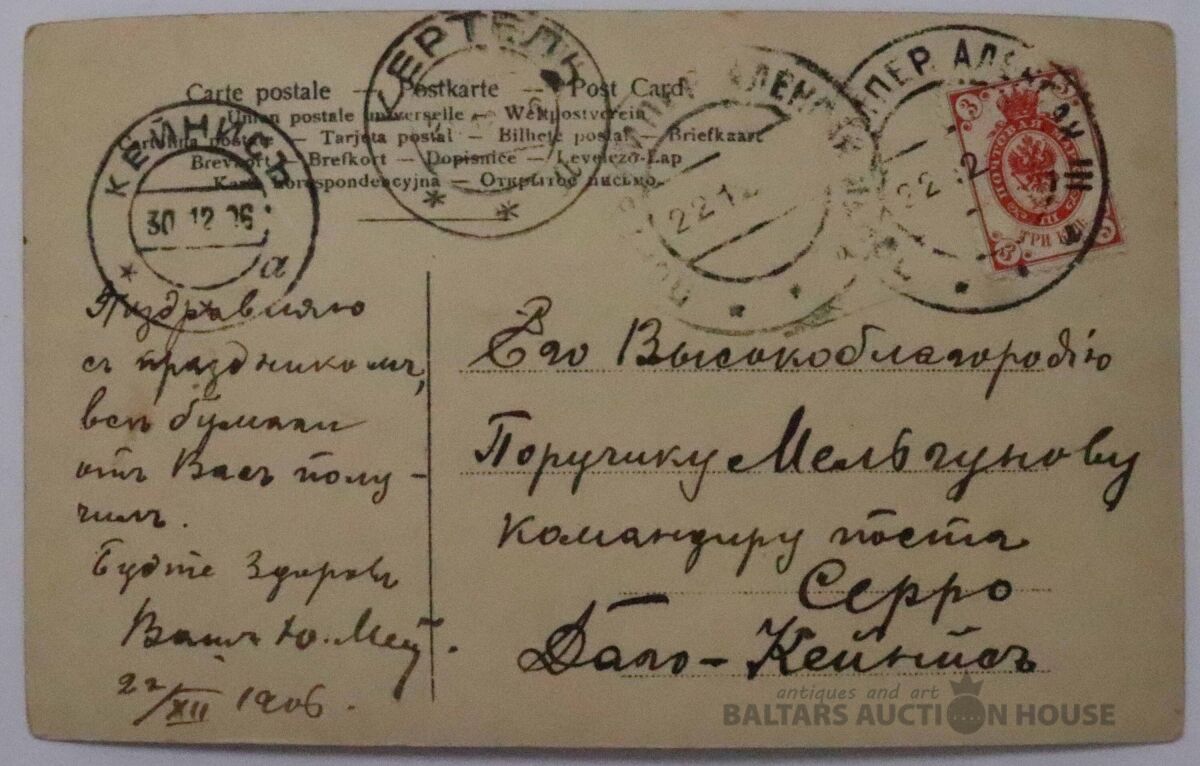 КЕРТЕЛЬ
ИМПЕР. АЛЕКСАН III
22 12
22 12
КЕЙНИСЪ
30 12 06
а
3
3
ПОЧТОВАЯ МАРКА
ТРИ КОП.
3
3
Carte postale — Postkarte — Post Card
Union postale universelle — Weltpostverein
Cartolina postale — Tarjeta postal — Bilhete postal — Briefkaart
Brevkort — Brefkort — Dopisnice — Levelezö-Lap
Karta korespondencyjna — Открытое письмо
Поздравляю
съ праздникомъ,
всѣ бумаги
отъ Васъ полу-
чилъ.
Будте здоровы
Вашъ Ю. Мей.
22/XII 1906.
Его Высокоблагородію
Поручику Мельгунову
командиру поста
Серро
Даго-Кейнисъ
antiques and art
BALTARS AUCTION HOUSE